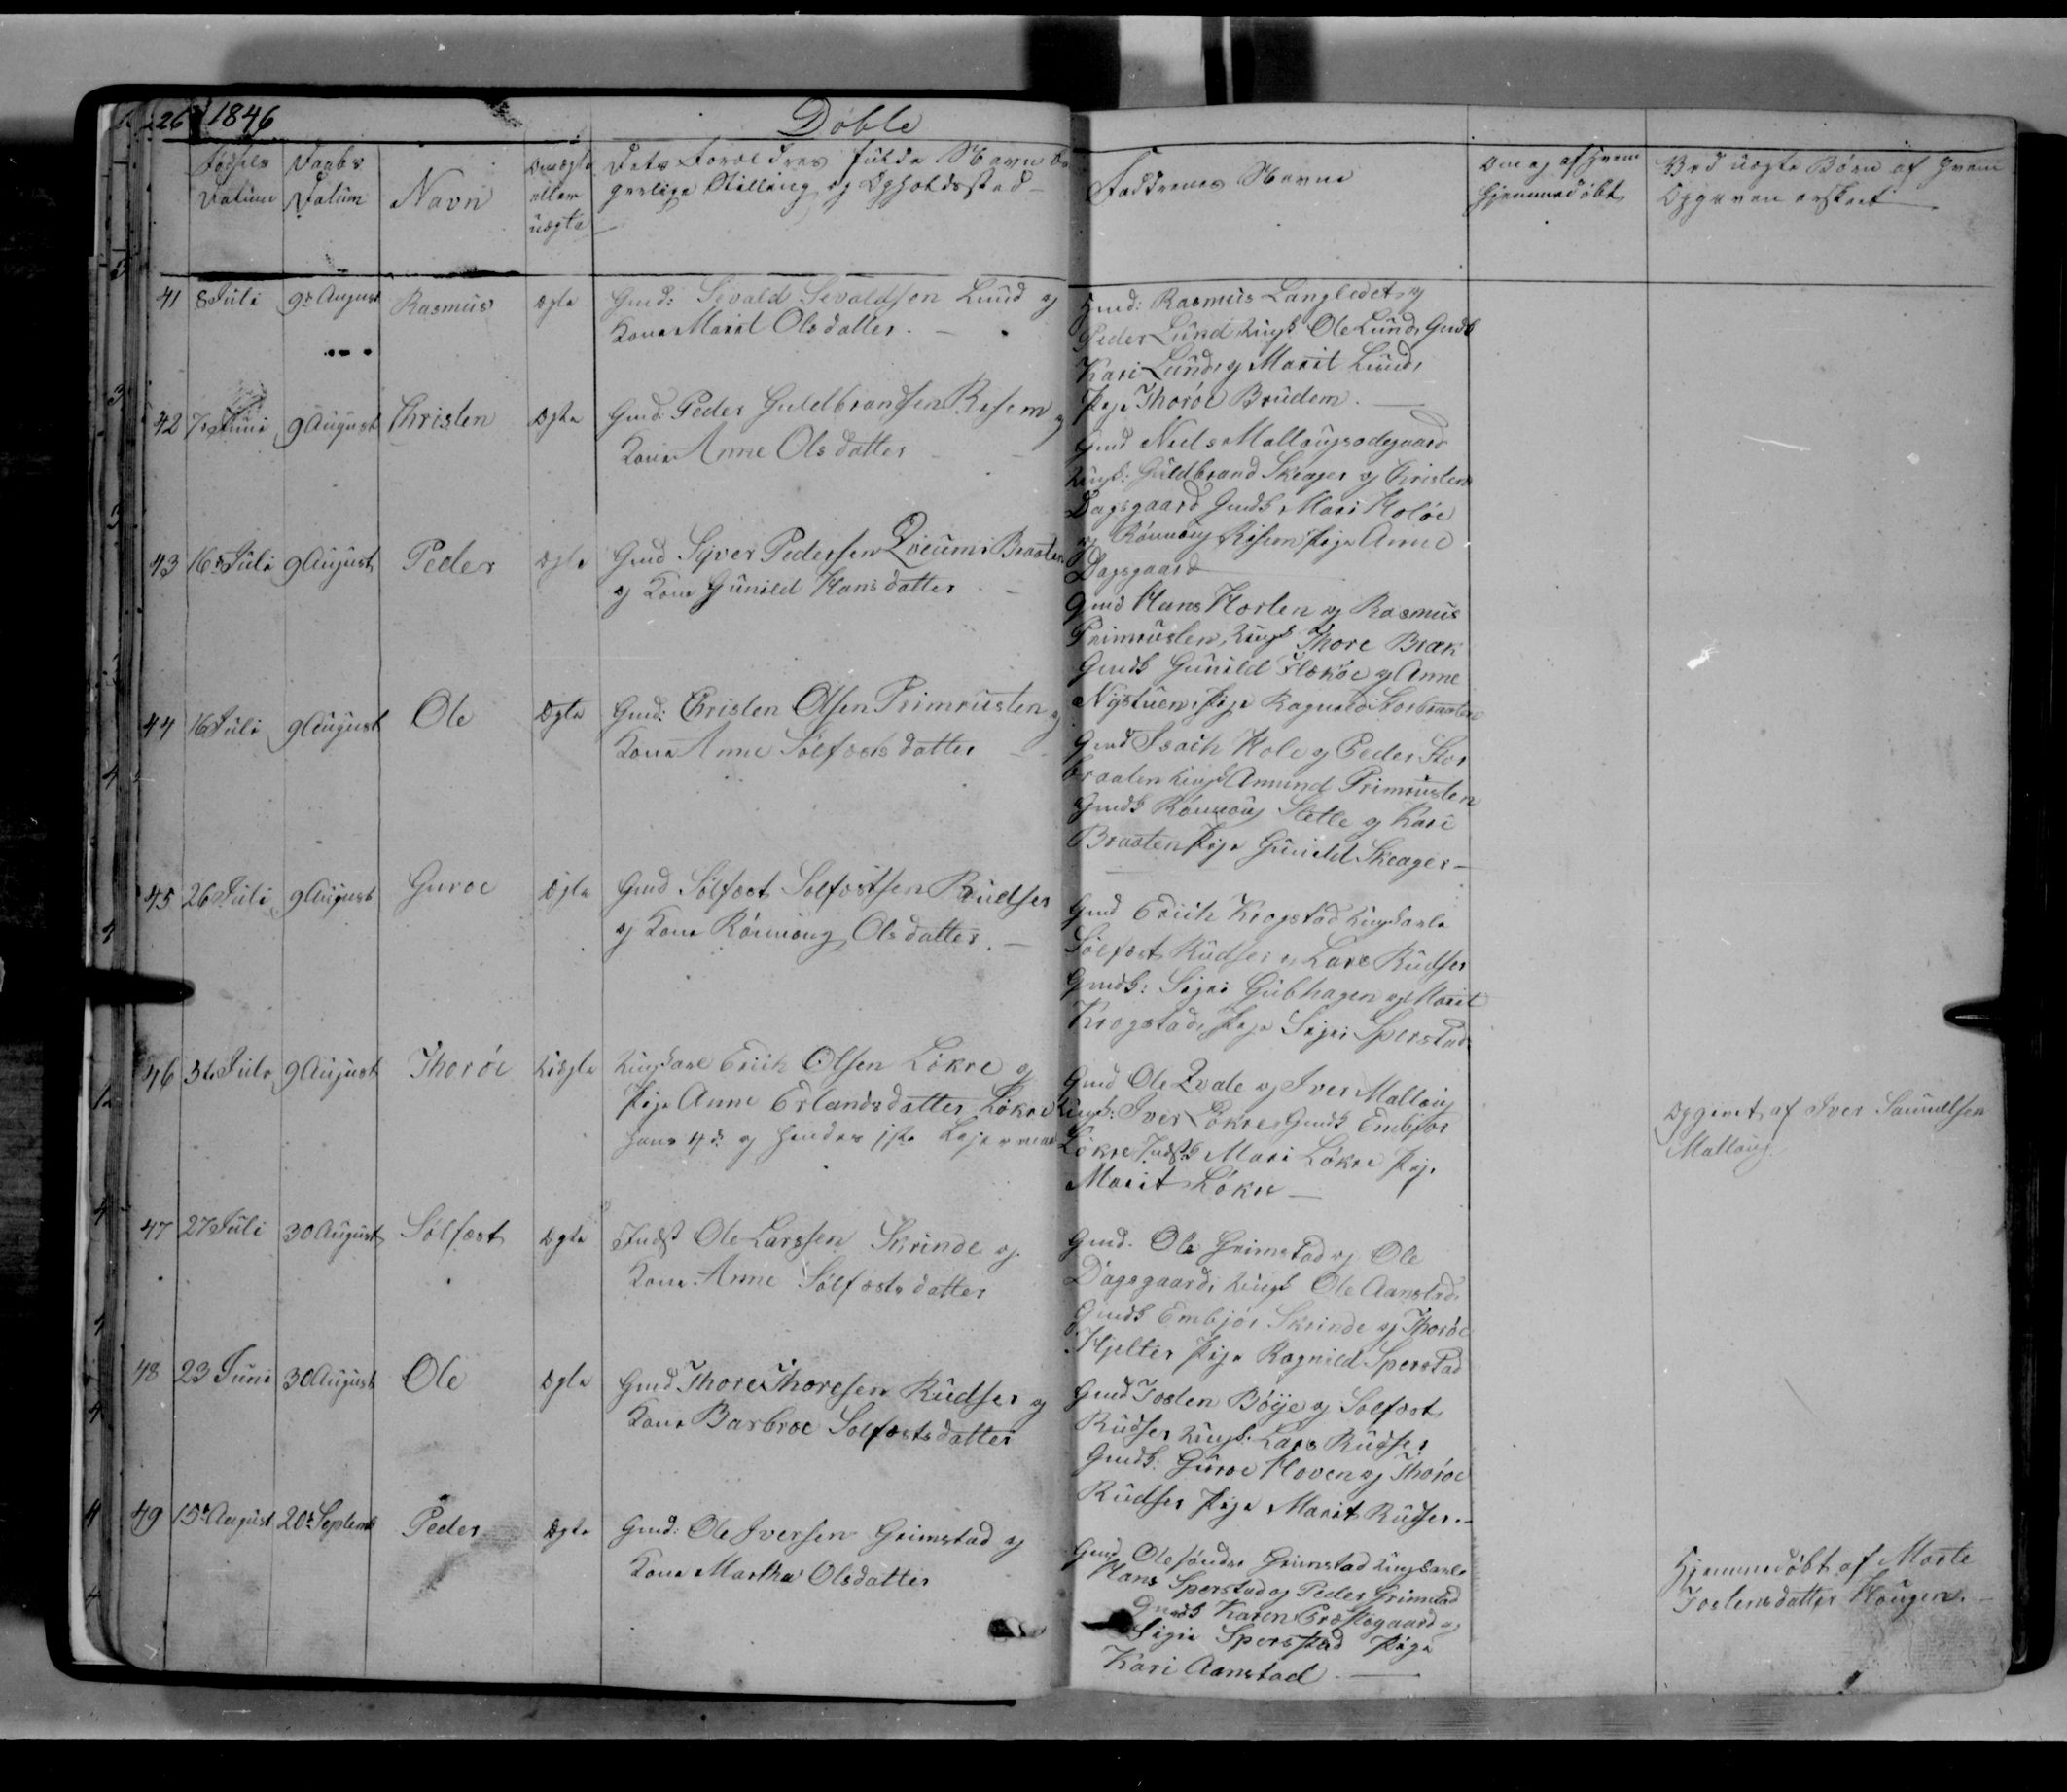 226 1846 Döbte
Fødsels Datum
Daabs Datum
Navn
Om ægte eller uægte
Dets Forældres fulde Navn Bor
gerlige Stilling og Opholdssted
Faddernes Navne
Om og af hvem
hjemmedöbt
Ved uægte Børn af hvem
Opgaven er skeet
41 8 Juli 9de August Rasmus Ægte Gmd: Sevald Sevaldsen Lund og
Kone Marit Olsdatter.
Gmd: Rasmus Langledet og
Peder Lund, Ungk Ole Lund, Gmdk
Kari Lund, og Marit Lund,
Pige Thoröe Brudem.
42 7de Juni 9 August Christen Ægte Gmd: Peder Guldbrandsen Risem og
Kone Anne Olsdatter
Gmd Niels Mallaugsødegaard
Ungk: Guldbrand Skeager og Christen
Dagsgaard Gmdk Mari Holöe
og Rönnoug Risem Pige Anne
Dagsgaard
43 16de Juli 9 August Peder Ægte Gmd Syver Pedersen Braaten
og Kone Gunild Hansdatter
Gmd Hans Horten og Rasmus
Primrusten, Ungk Thore Bræk
Gmdk Gunild Flækøe og Anne
Nystuen, Pige Ragnild Storbraaten
44 16 Juli 9 August Ole Ægte Gmd: Christen Olsen Primrusten og
Kone Anne Sölfæstsdatter
Gmd Isach Hole og Peder Stor
braaten Ungk Amund Primrusten
Gmdk Rönnoug Slette og Kari
Braaten Pige Gunild Skeager
45 26 Juli 9 August Guroe Ægte Gmd Sölfæst Solfæstsen Rudser
og Kone Rönnoug Olsdatter.
Gmd Erich Krogstad Ungkarle
Sölfæst Rudser og Lars Rudser
Gmdk: Sigri Gubhagen og Marit
Krogstad, Pige Sigri Sperstad
46 31 Juli 9 August Thoröe Uægte Ungkarl Erich Olsen Lökre og
Pige Anne Erlandsdatter Lökre
hans 4de og hendes 1ste Lejermaal
Gmd Ole Qvale og Iver Mallaug
Ungk: Iver Lökre, Gmdk Embjör
Lökre Indstk Mari Lökre Pige
Marit Lökre
Opgivet af Iver Samuelsen
Mallaug.
47 27 Juli 30 August Sölfæst Ægte Indst Ole Larssen Skrinde og
Kone Anne Sölfæstsdatter
Gmd. Ole Grimstad og Ole
Dagsgaard, Ungk Ole Aanstad,
Gmdk Embjör Skrinde og Thoröe
Hjelter Pige Ragnild Sperstad
48 23 Juni 30 August Ole Ægte Gmd Thore Thoresen Rudser og
Kone Barbroe Solfæstsdatter
Gmd Josten Böye og Solfæst
Rudser Ungk. Lars Rudser
Gmdk: Guroe Hoven og Thoröe
Rudser Pige Marit Rudser.
49 15de August 20de Septemb Peder Ægte Gmd: Ole Iversen Grimstad og
Kone Marthe Olsdatter
Gmd Ole söndre Grimstad Ungkarle
Hans Sperstad og Peder Grimstad
Gmdk Karen Præstegaard og
Sigri Sperstad Pige
Kari Aanstad.
Hjemmedöbt af Marte
Jostensdatter Haugen.